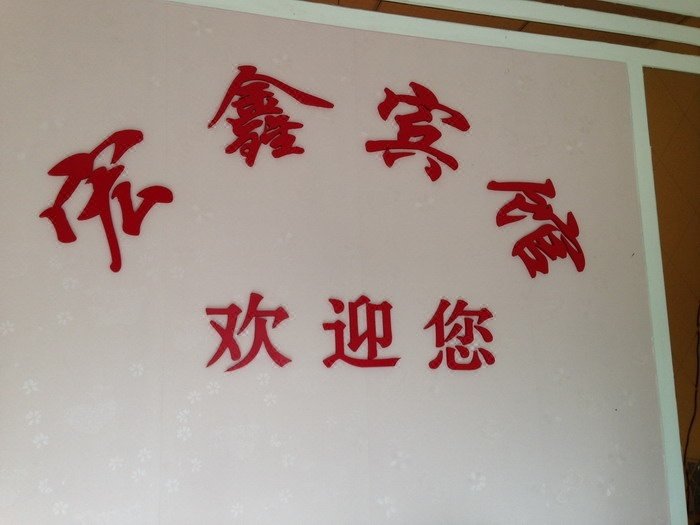 鑫宾馆
欢迎您